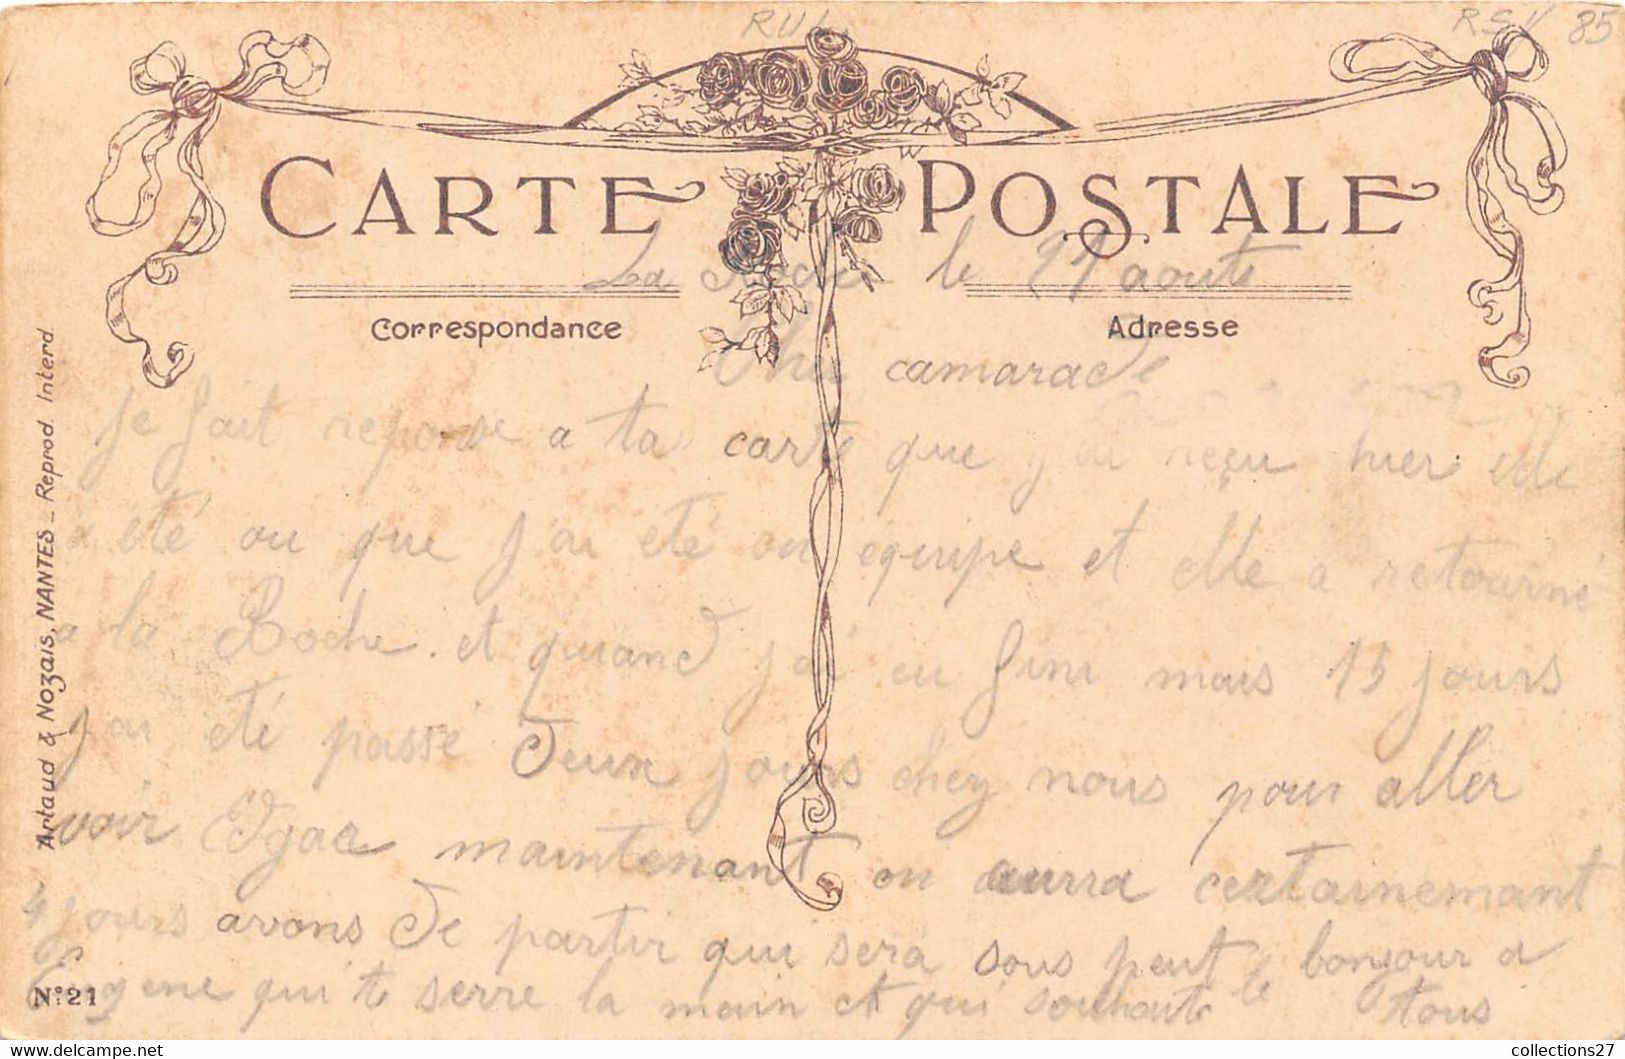 RSY 85
CARTE POSTALE
La Roche le 21 aoute
Correspondance
Adresse
Cher camarade
Je fait reponse a ta carte que j'ai reçu hier elle
a été ou que j'ai eté en equipe et elle a retourné
a la Roche. et quand j'ai eu fini mais 15 jours
j'ai eté passé deux jours chez nous pour aller
voir maintenant on aurra certainemant
4 jours avans de partir qui sera sous peut bonjour a
qui te serre la main et qui souhaite le tous
Artaud & Nozais, NANTES _ Reprod. Interd
Nº 21
collections27